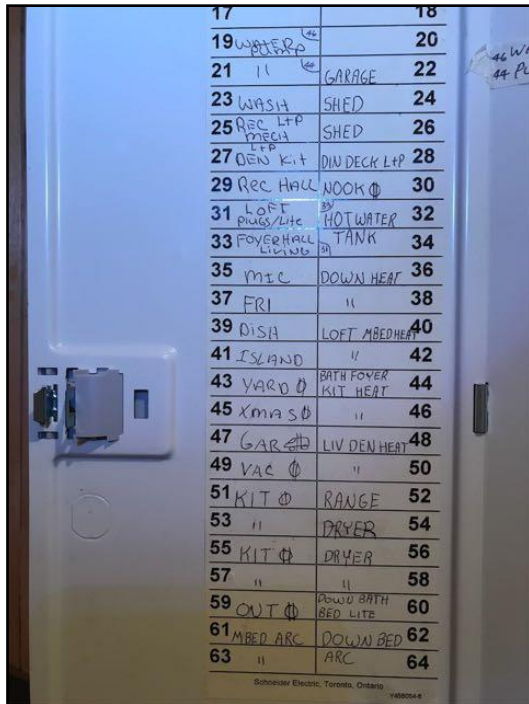 17 18
19 WATER PUMP 46 20
21 " 44 GARAGE 22
23 WASH SHED 24
25 REC L+P MECH SHED 26
27 L+P DEN Kit DIN DECK L+P 28
29 REC HALL NOOK 30
31 LOFT Plugs/Lite HOTWATER 32
33 FOYER HALL LIVING TANK 34
35 MIC DOWN HEAT 36
37 FRI " 38
39 DISH LOFT MBED HEAT 40
41 ISLAND " 42
43 YARD BATH FOYER KIT HEAT 44
45 XMAS " 46
47 GAR LIV DEN HEAT 48
49 VAC " 50
51 KIT RANGE 52
53 " DRYER 54
55 KIT DRYER 56
57 " " 58
59 OUT DOWN BATH BED LITE 60
61 MBED ARC DOWN BED 62
63 " ARC 64
Schneider Electric, Toronto, Ontario
46
44